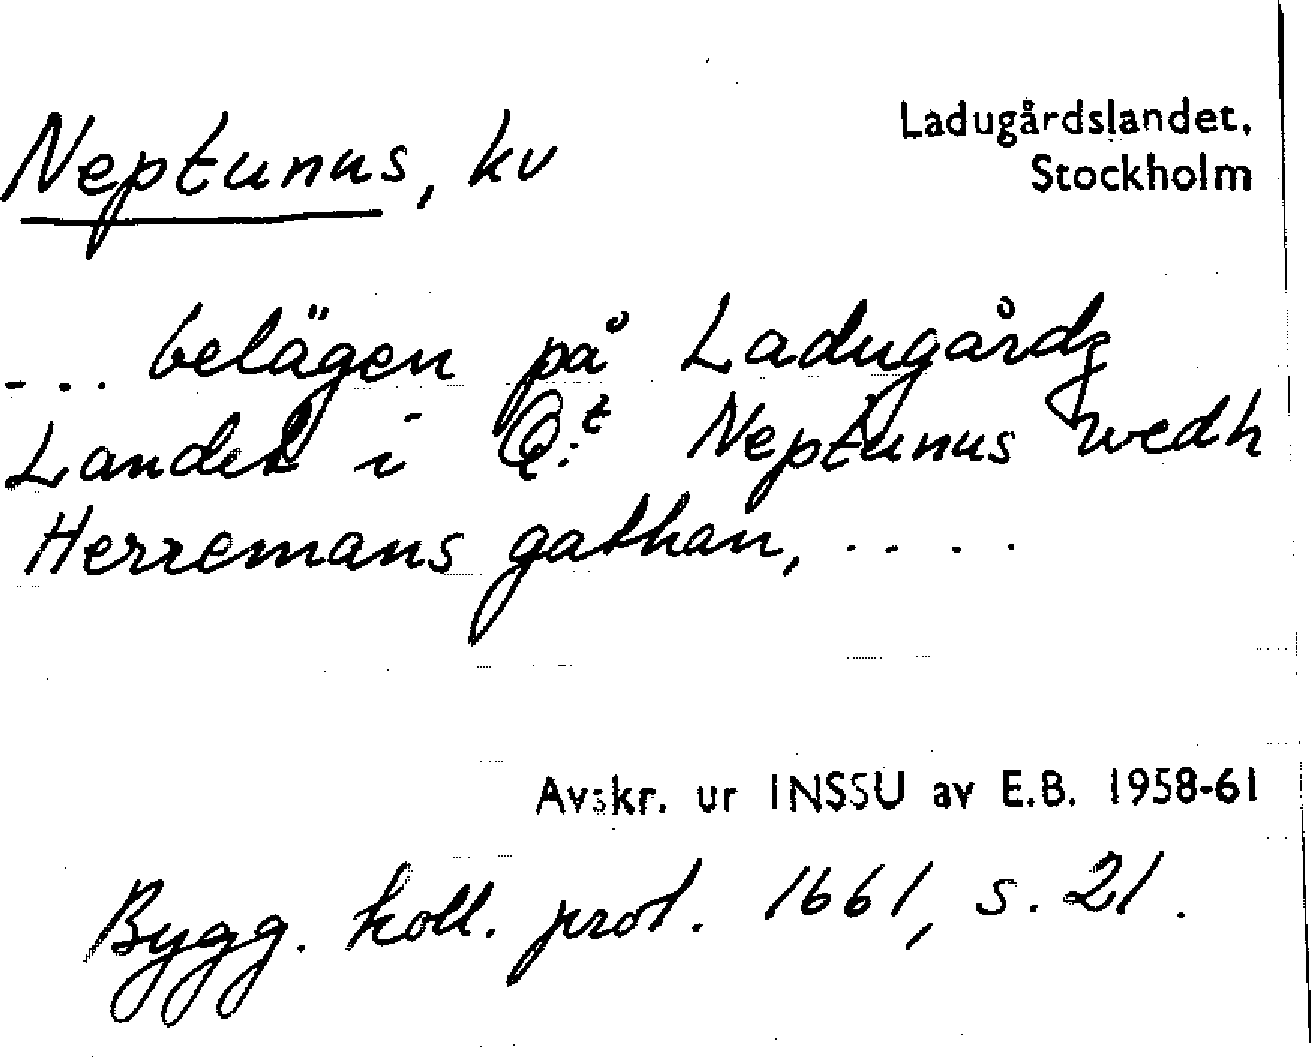 Neptunus, kv
Ladugårdslandet,
Stockholm
... belägen på Ladugårdz
Landet i Q:t Neptunus wedh
Herremans gathan, ....
Avskr. ur INSSU av E.B. 1958-61
Bygg. koll. prot. 1661, s. 21.